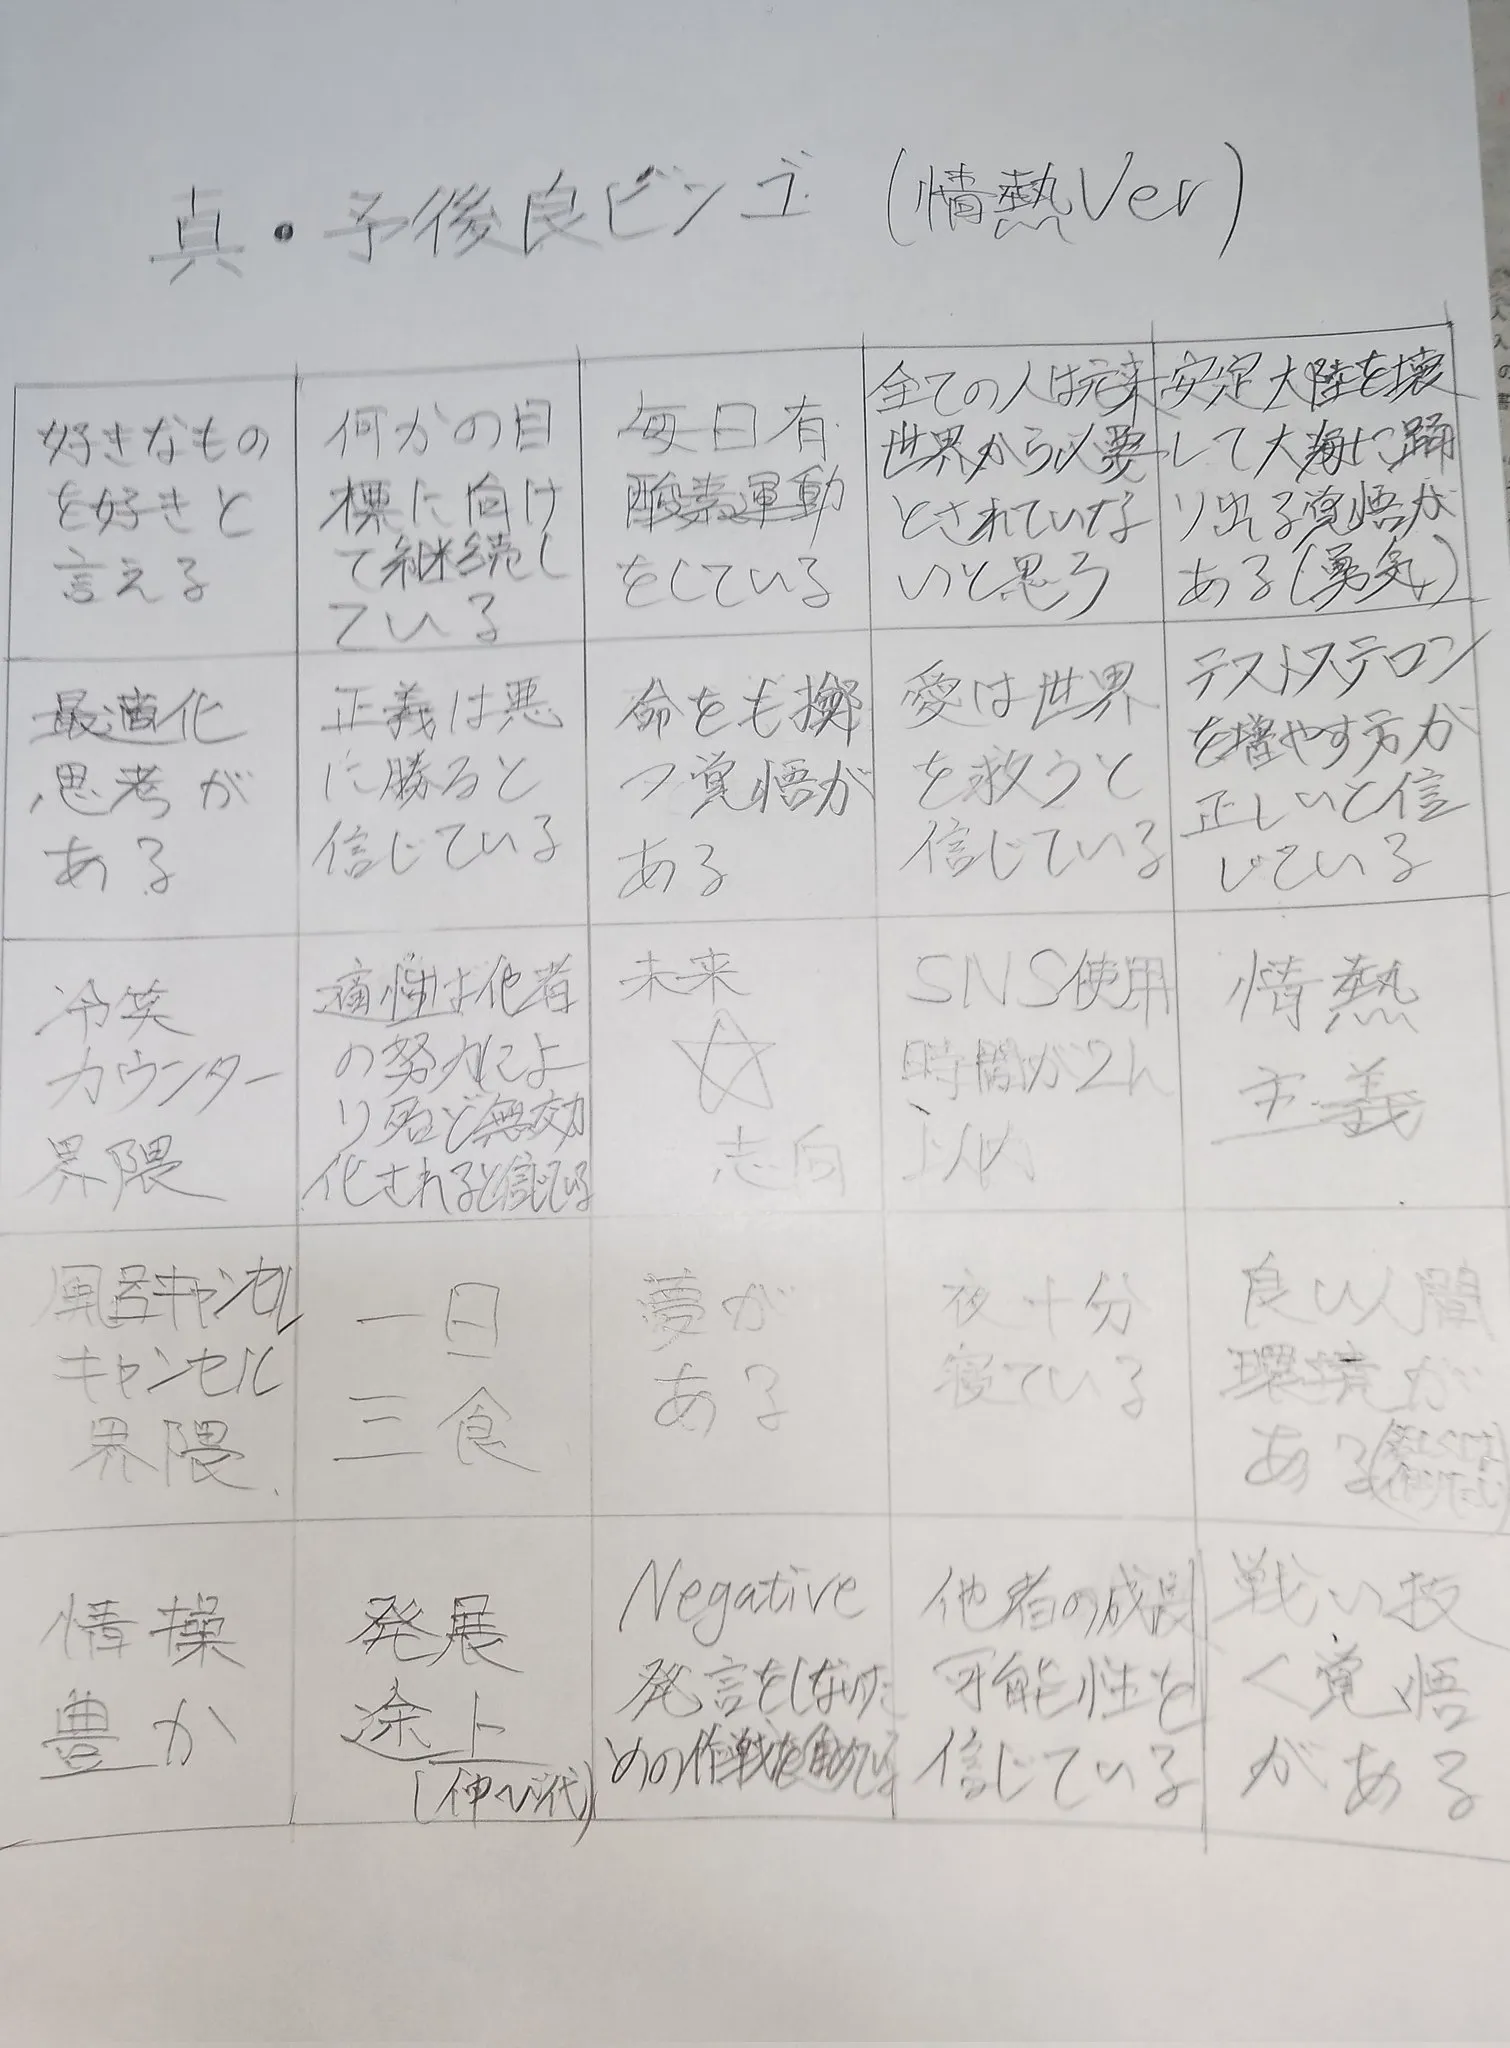 真・予後良ビンゴ (情熱Ver)
好きなもの
を好きと
言える
何かの目
標に向け
て継続し
ている
毎日有
酸素運動
をしている
全ての人は元来
世界から必要
とされていな
いと思う
安定大陸を壊
して大海に踊
り出る覚悟が
ある(勇気)
最適化
思考が
ある
正義は悪
に勝ると
信じている
命をも擲
つ覚悟が
ある
愛は世界
を救うと
信じている
テストステロン
を増やす方が
正しいと信
じている
冷笑
カウンター
界隈
痛性は他者
の努力によ
り殆ど無効
化されると信じている
未来
☆
志向
SNS使用
時間が2h
以内
情熱
主義
風呂キャンセル
キャンセル
界隈
一日
三食
夢が
ある
夜十分
寝ている
良い人間
環境が
ある
情操
豊か
発展
途上
(伸び代)
Negative
発言をしないた
めの作戦を
他者の成長
可能性を
信じている
戦い抜
く覚悟
がある